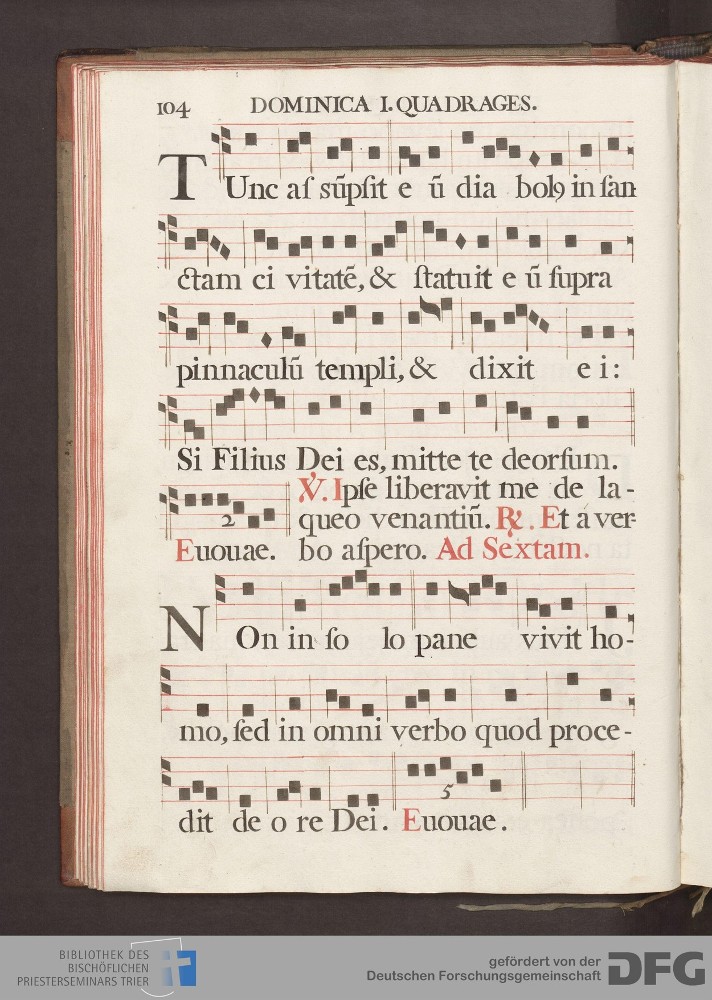 104 DOMINICA I. QUADRAGES.
TUnc aſ sūpſit e ū dia bolꝰ in ſan-
ctam ci vitatē, & ſtatuit e ū ſupra
pinnaculū templi, & dixit e i:
Si Filius Dei es, mitte te deorſum.
℣. Ipſe liberavit me de la-
2 queo venantiū. ℟. Et á ver-
Euouae. bo aſpero. Ad Sextam.
NOn in ſo lo pane vivit ho-
mo, ſed in omni verbo quod proce-
5
dit de o re Dei. Euouae.
BIBLIOTHEK DES
BISCHÖFLICHEN
PRIESTERSEMINARS TRIER
gefördert von der
Deutschen Forschungsgemeinschaft DFG